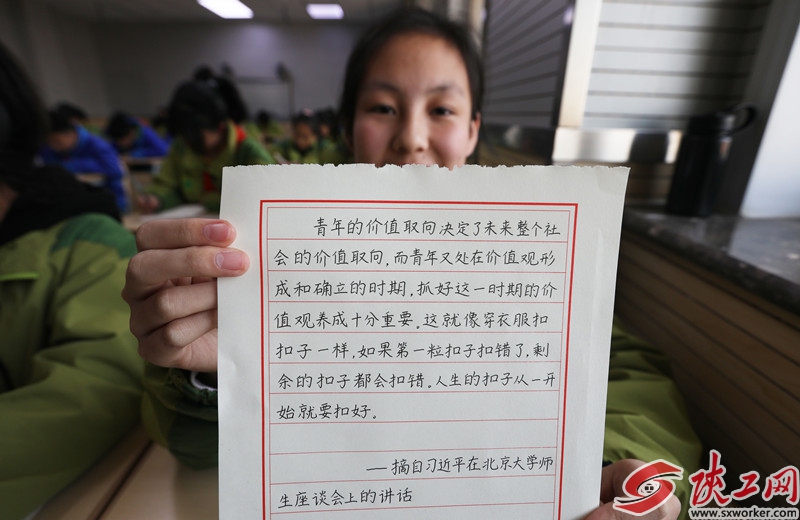 青年的价值取向决定了未来整个社
会的价值取向,而青年又处在价值观形
成和确立的时期,抓好这一时期的价
值观养成十分重要。这就像穿衣服扣
扣子一样,如果第一粒扣子扣错了,剩
余的扣子都会扣错。人生的扣子从一开
始就要扣好。
——摘自习近平在北京大学师
生座谈会上的讲话
陕工网
www.sxworker.com